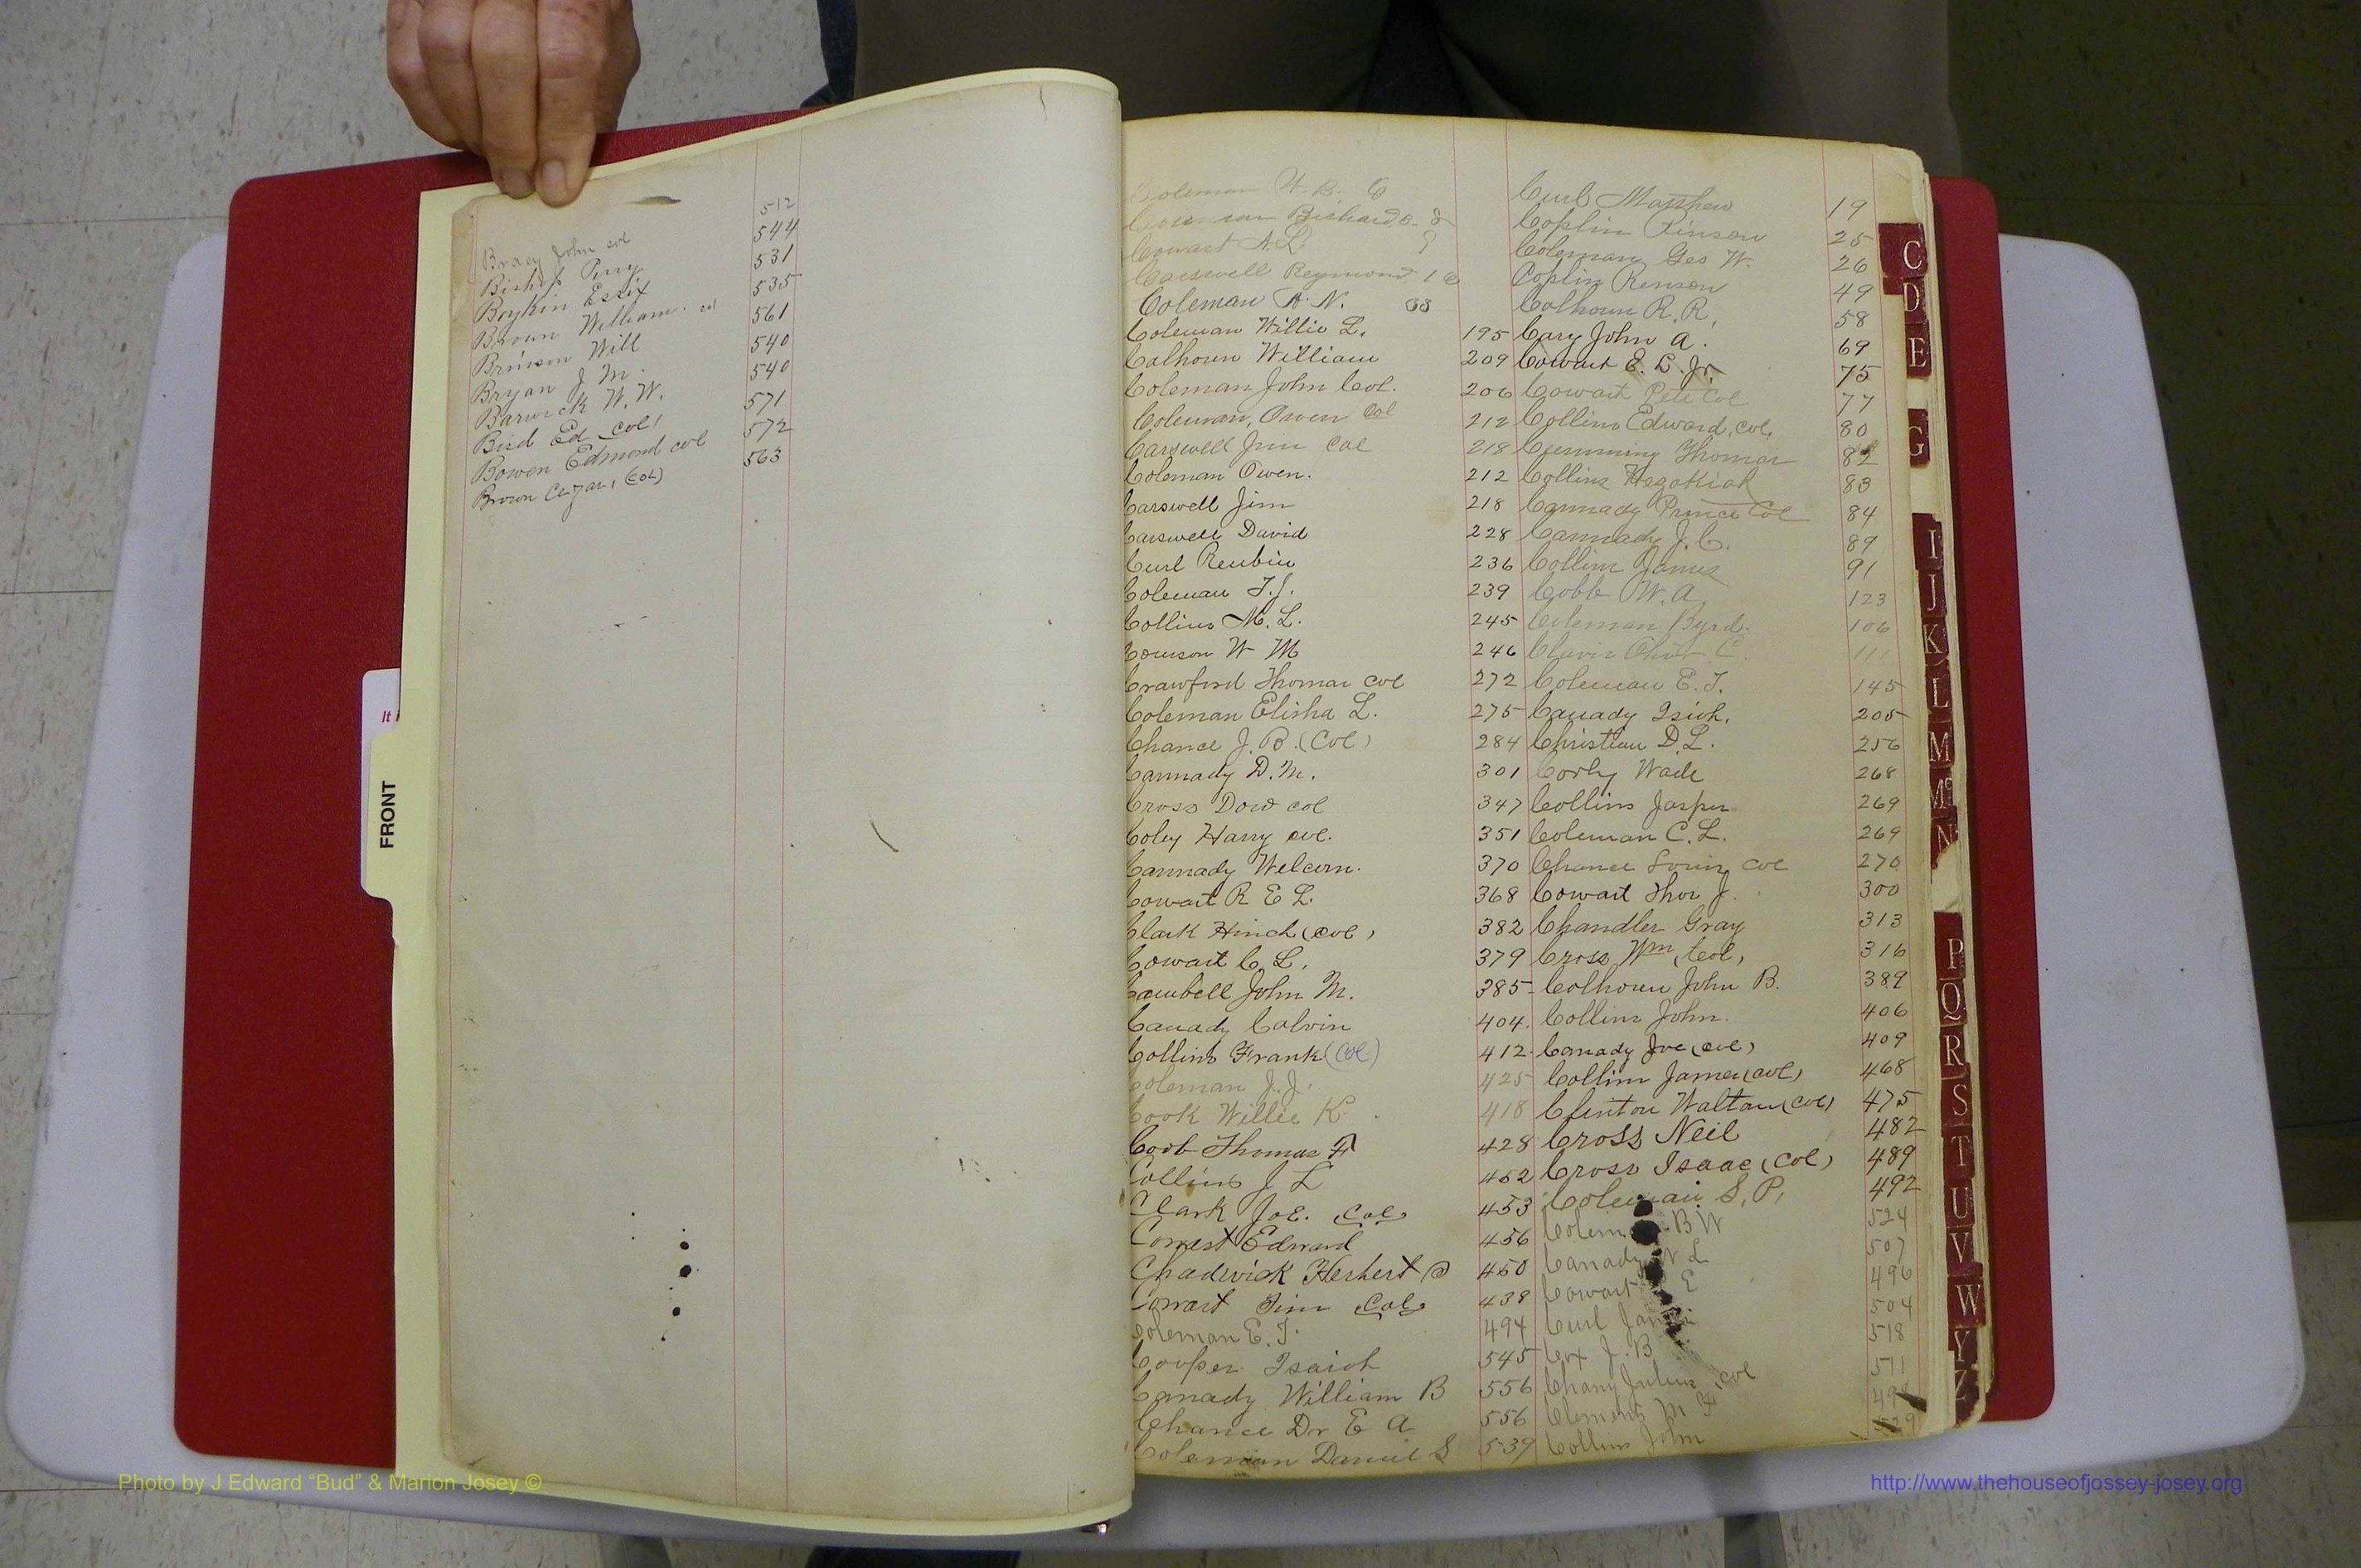 512
Bracy John col 544
Bishop Perry 531
Boykin Essix 535
Brown William. col 561
Brinson Will 540
Bryan J. M. 540
Barwick W. W. 571
Bird Ed col 572
Bowen Edmond col 563
Brown Cezar, (Col)
Coleman W. B. 6
Coleman Richard 8
Cowart N. L. 9
Carswell Reymond
Coleman A. N.
Coleman Willie L. 195
Calhoun William 209
Coleman John Col. 206
Coleman, Owen Col 212
Carswell Jim Col 218
Coleman Owen. 212
Carswell Jim 218
Carswell David 228
Curl Reubin 236
Coleman T. J. 239
Collins M. L. 245
W M 246
Crawford Thomas col 272
Coleman Elisha L. 275
Chance J. B. (Col) 284
Cannady D. M. 301
Cross Dow col 347
Coley Harry col. 351
Cannady Welcom. 370
Cowart R E L. 368
Clark Hinch (col) 382
Cowart C. L. 379
Cambell John M. 385
Canady Calvin 404.
Collins Frank (Col) 412
Coleman J. J. 425
Cook Willie K. 418
Cobb Thomas 428
Collins J L 452
Clark Joe. Col 453
Cowart Edward 456
Chadwick Herbert 450
Cowart Jim Col 438
Coleman E. T. 494
Cooper Isaiah 545
Canady William B 556
Chance Dr E A 556
Coleman Daniel S 539
Curl Matthew 19
Coplin Rinson 25
Coleman Geo W. 26
Coplin Renson 49
Calhoun R. R. 58
Cary John A. 69
Cowart E. L. Jr. 75
Cowart Pete Col 77
Collins Edward, col, 80
Cumming Thomas 82
Collins Hezekiah 83
Cannady Prince Col 84
Cannady J. C. 89
Collins James 91
Cobb W. A 123
Coleman Byrd. 106
C. 111
Coleman E. T. 145
Canady Isiah. 205
Christian D. L. 256
Corly Wade 268
Collins Jasper 269
Coleman C. L. 269
Chance Col 270
Cowart Thos J. 300
Chandler Gray 313
Cross Wm (Col) 316
Calhoun John B. 389
Collins John. 406
Canady Joe (col) 409
Collins James (col) 468
Clinton (col) 475
Cross Neil 482
Cross Isaac (Col) 489
Coleman S. P. 492
B W 524
Canady L 507
Cowart E 496
Curl 504
Cox J. B 518
Chany Julius col 511
Clements M
Collins John
C
D
E
G
I
J
K
L
M
Mc
N
P
Q
R
S
T
U
V
W
Y
Z
It
FRONT
Photo by J Edward “Bud” & Marion Josey ©
http://www.thehouseofjossey-josey.org